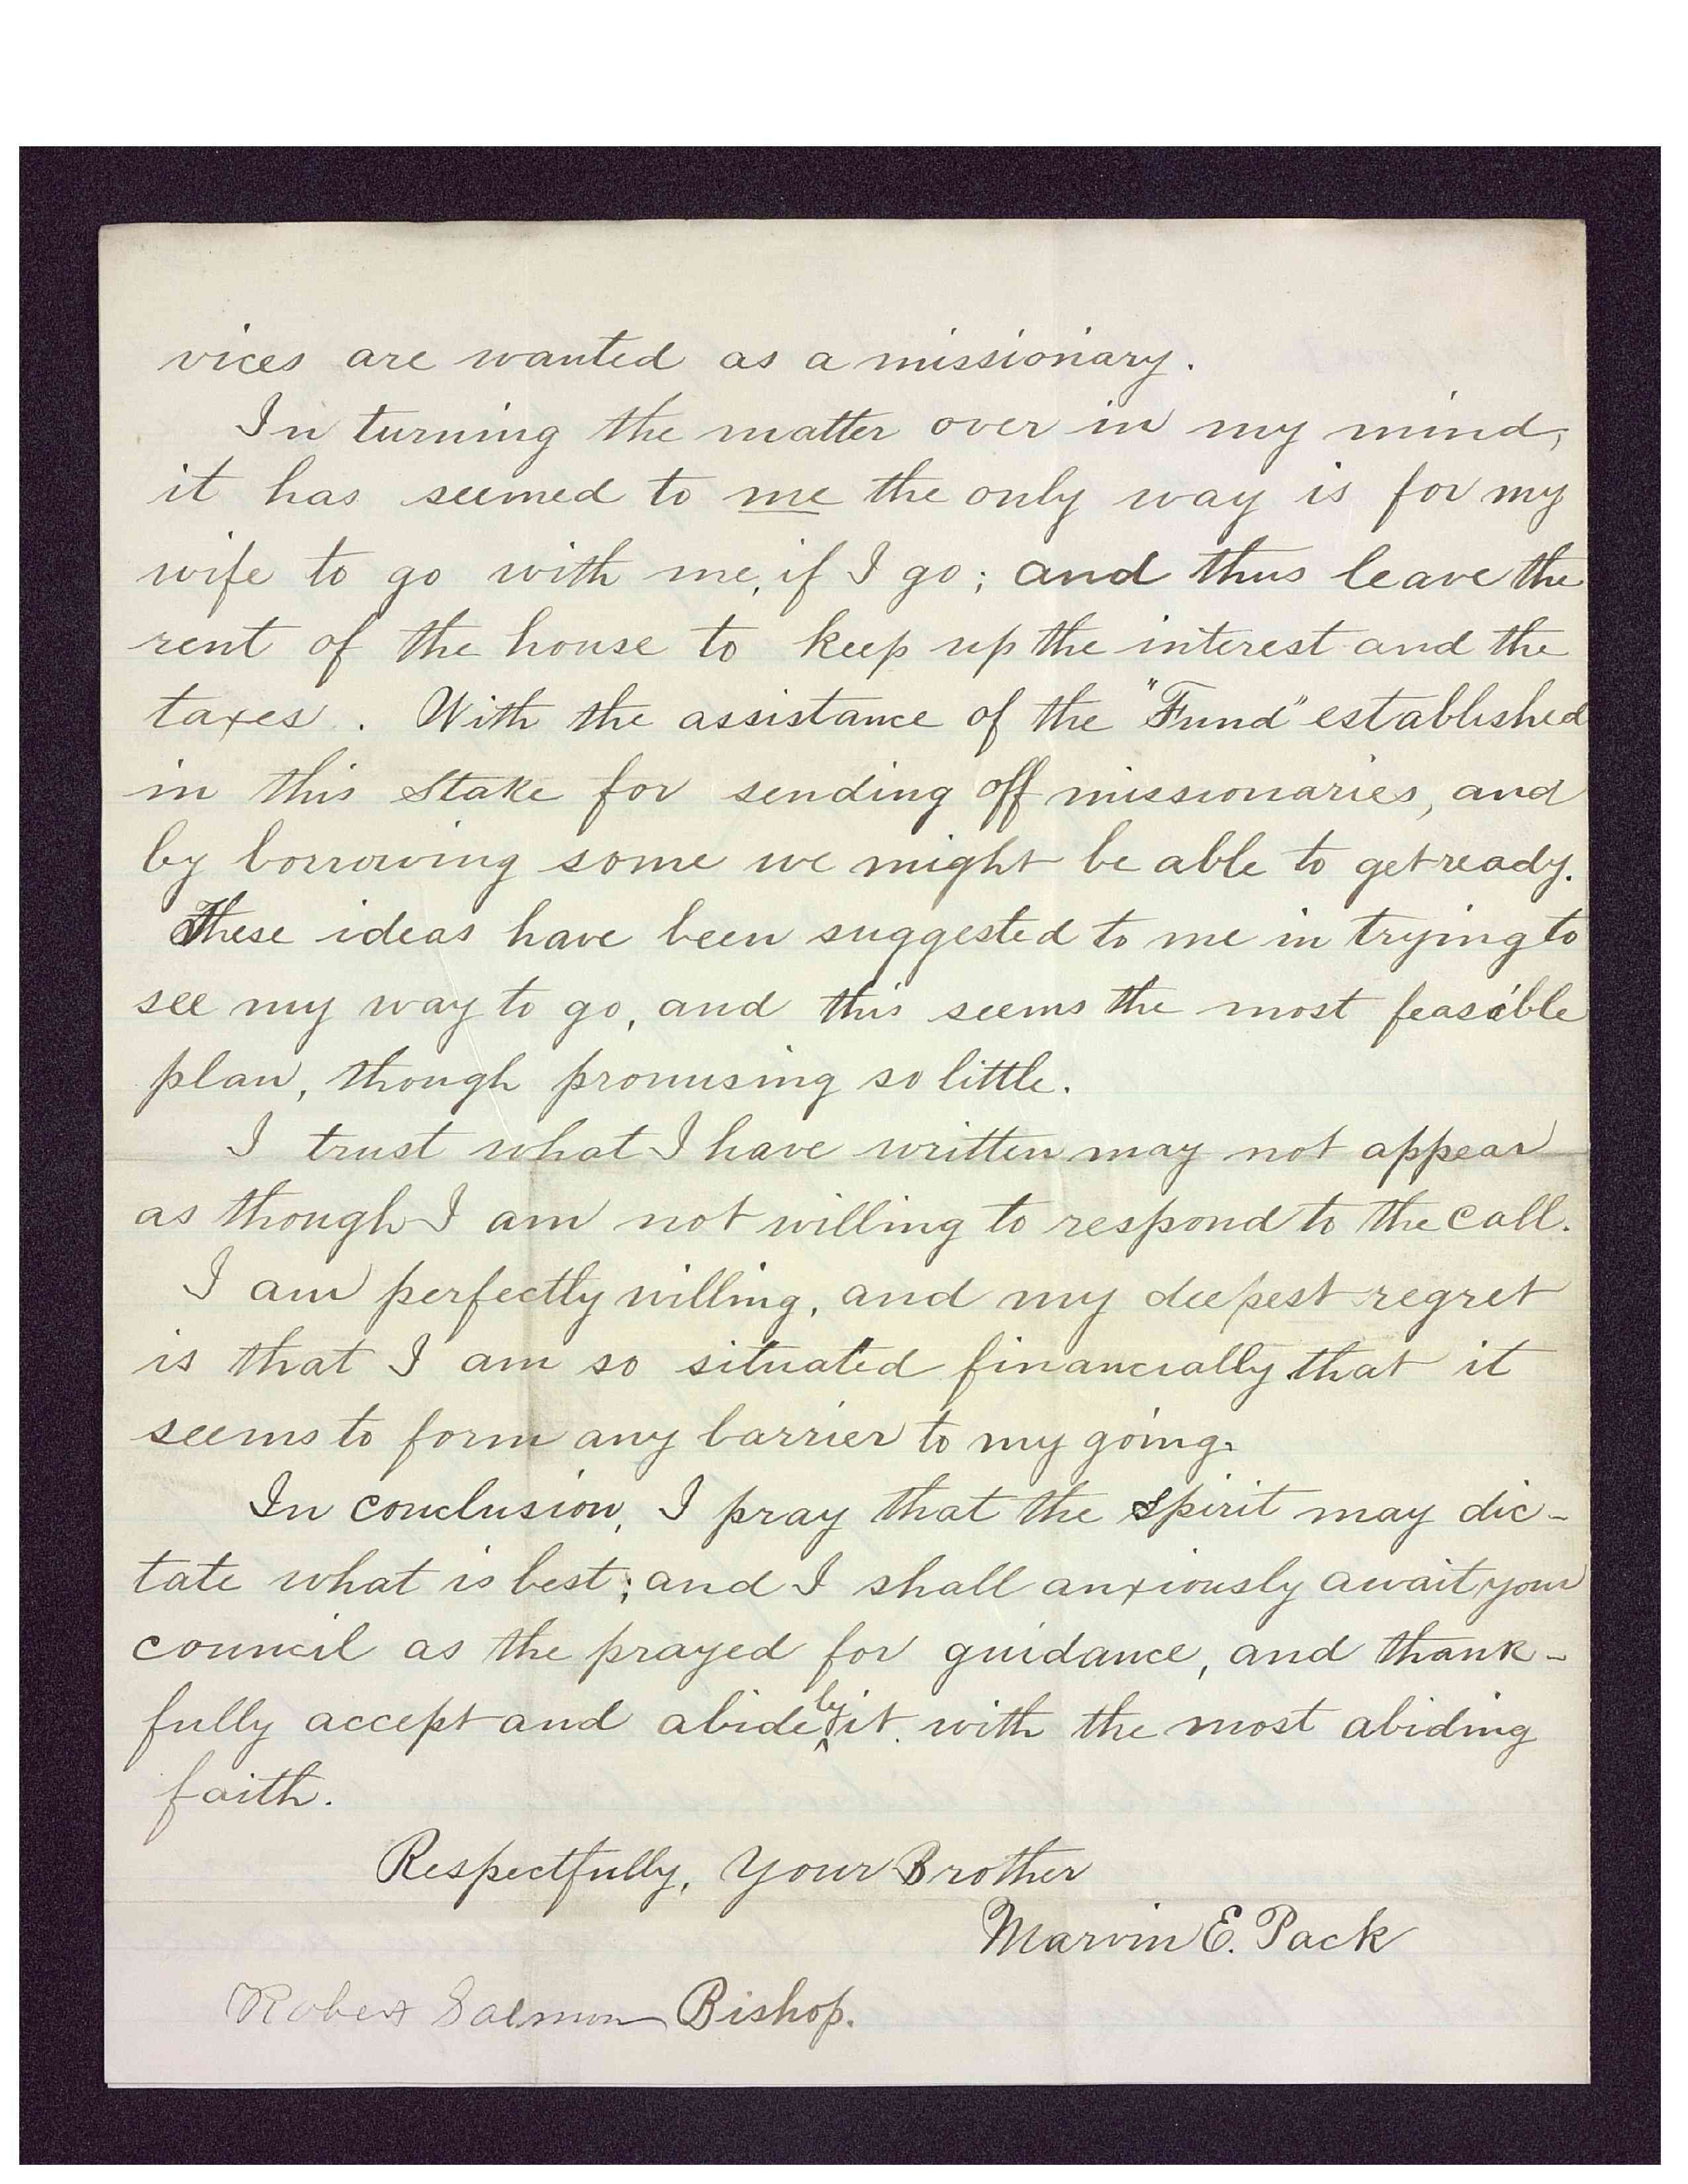 vices are wanted as a missionary.
In turning the matter over in my mind,
it has seemed to me the only way is for my
wife to go with me, if I go; and thus leave the
rent of the house to keep up the interest and the
taxes. With the assistance of the "Fund" established
in this Stake for sending off missionaries, and
by borrowing some we might be able to get ready.
These ideas have been suggested to me in trying to
see my way to go, and this seems the most feasible
plan, though promising so little.
I trust what I have written may not appear
as though I am not willing to respond to the call.
I am perfectly willing, and my deepest regret
is that I am so situated financially that it
seems to form any barrier to my going.
In conclusion, I pray that the Spirit may dic-
tate what is best; and I shall anxiously await your
council as the prayed for guidance, and thank-
fully accept and abide by it with the most abiding
faith.
Respectfully, Your Brother
Marvin E. Pack
Robert Salmon Bishop.